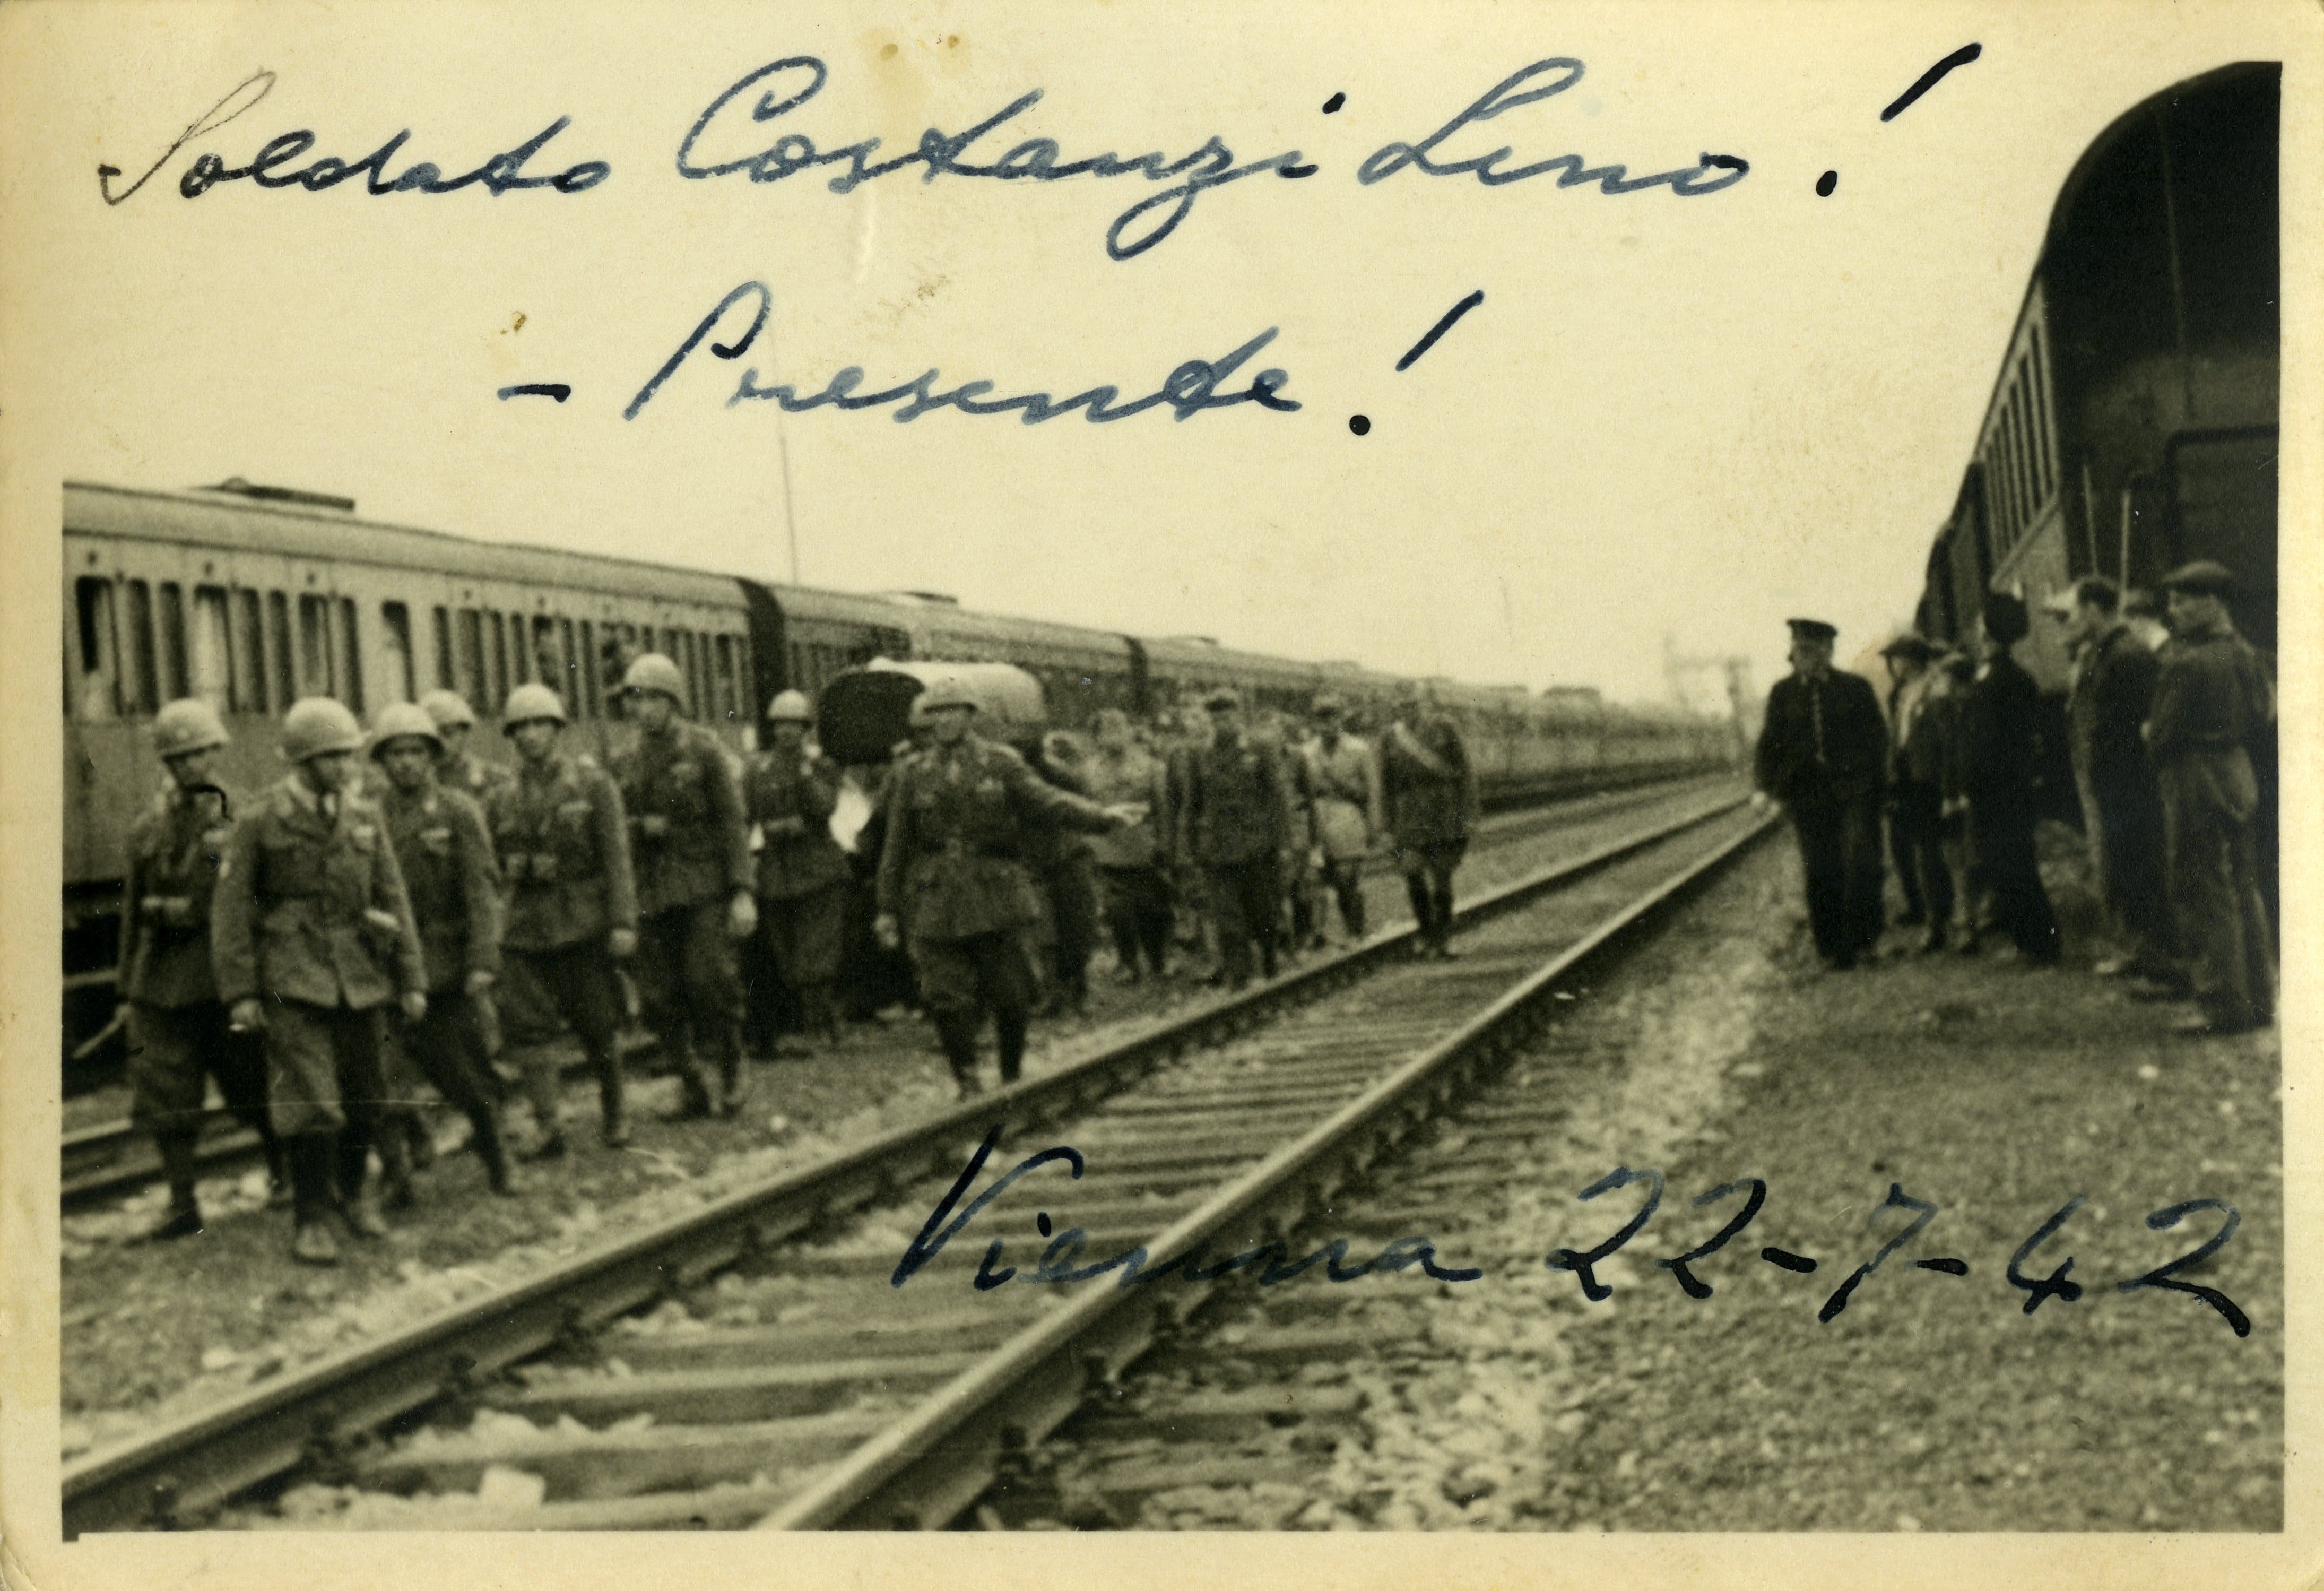 Soldato Costanzi Lino!
- Presente!
Vienna 22-7-42